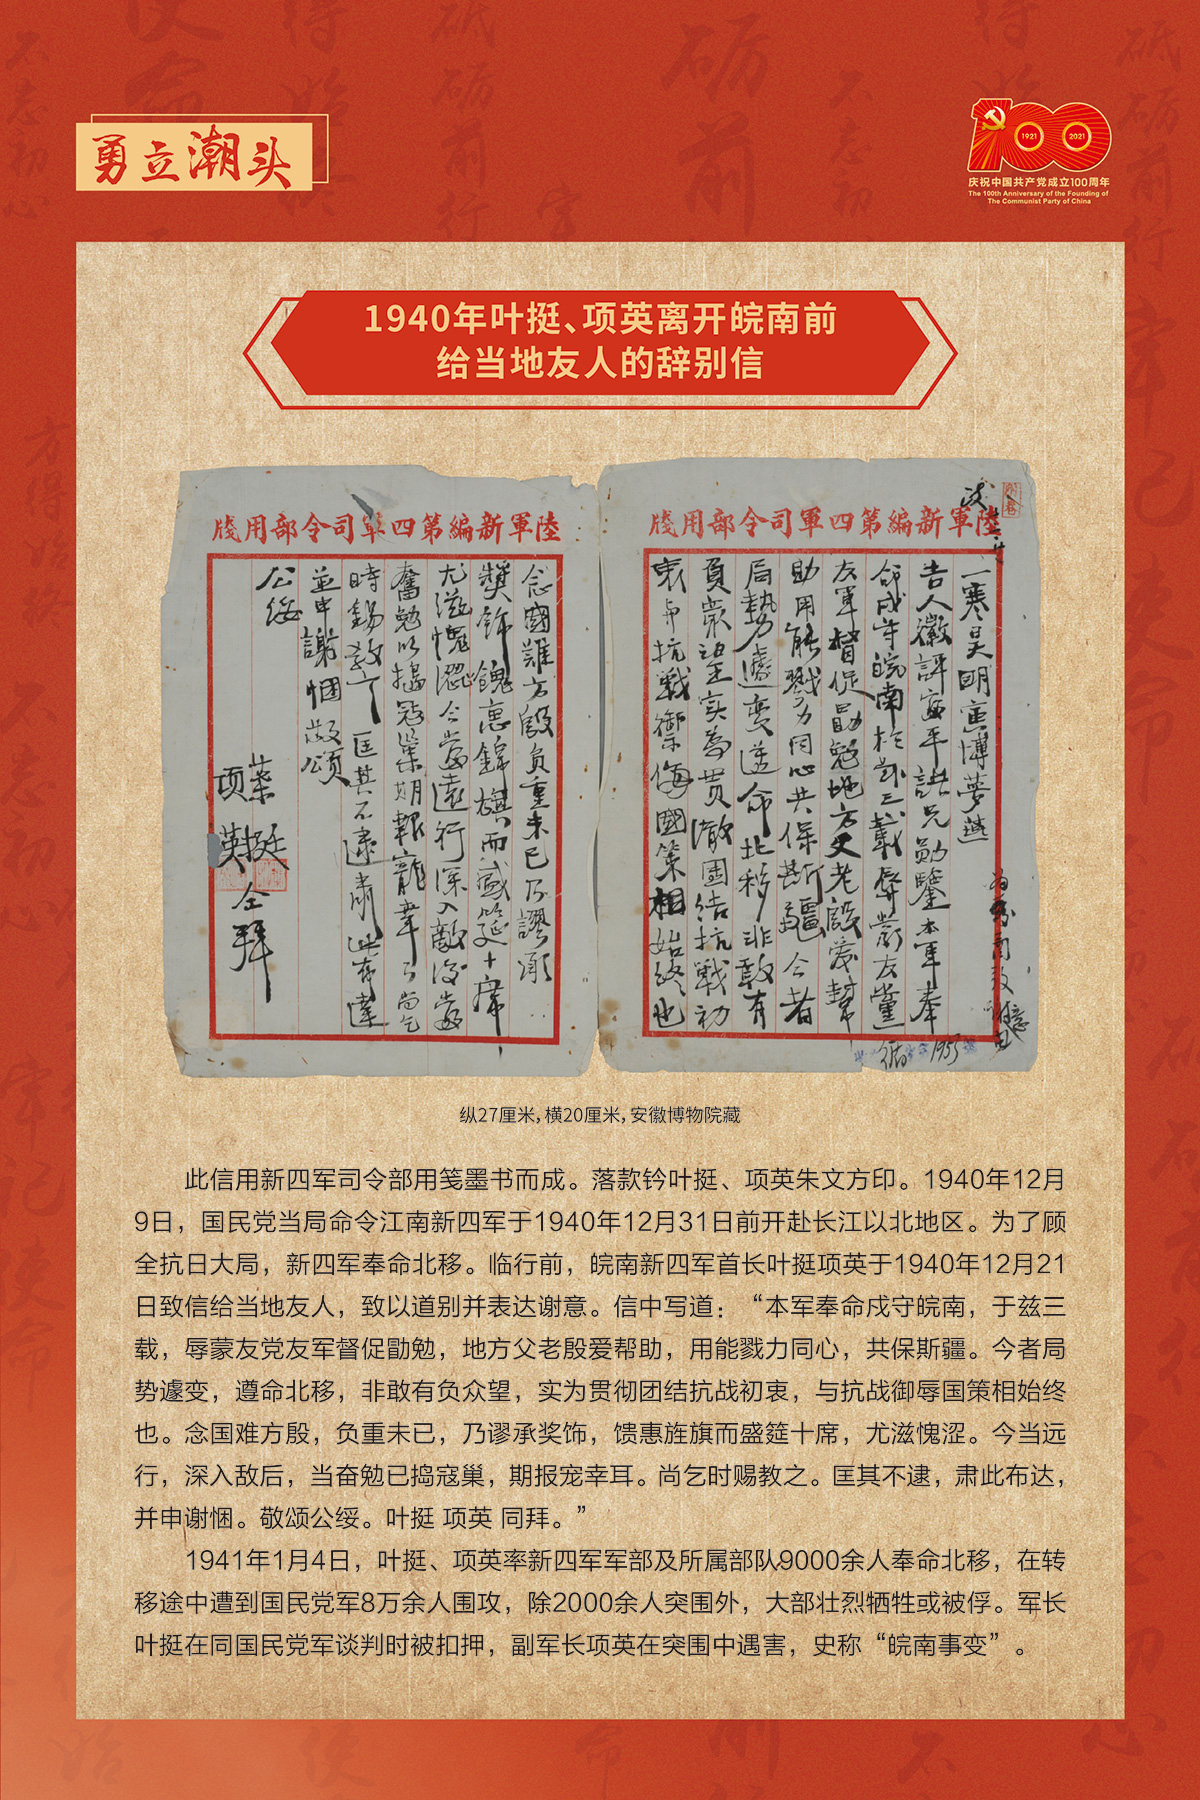 勇立潮头
100
1921
2021
庆祝中国共产党成立100周年
The 100th Anniversary of the Founding of
The Communist Party of China
1940年叶挺、项英离开皖南前
给当地友人的辞别信
陸軍新編第四軍司令部用牋
吉人徽評寔平諸兄勋鑒本軍奉
命戍守皖南於茲三載辱蒙友黨
友軍督促勖勉地方父老殷爱幫
助用能戮力同心共保斯疆今者
局勢遽变遵命北移非敢有
負衆望实為贯澈團结抗戰初
衷与抗戰禦侮國策相始終也
1953
陸軍新編第四軍司令部用牋
念國難方殷負重未已乃謬承
獎飾餽惠錦旗而盛筵十席
尤滋愧澀今當遠行深入敵後當
奮勉以搗寇巢期報寵幸耳尚乞
時錫教之匡其不逮肅此布達
並申謝悃敬頌
公绥
葉挺
项英
仝拜
纵27厘米，横20厘米，安徽博物院藏
此信用新四军司令部用笺墨书而成。落款钤叶挺、项英朱文方印。1940年12月
9日，国民党当局命令江南新四军于1940年12月31日前开赴长江以北地区。为了顾
全抗日大局，新四军奉命北移。临行前，皖南新四军首长叶挺项英于1940年12月21
日致信给当地友人，致以道别并表达谢意。信中写道：“本军奉命戍守皖南，于兹三
载，辱蒙友党友军督促勖勉，地方父老殷爱帮助，用能戮力同心，共保斯疆。今者局
势遽变，遵命北移，非敢有负众望，实为贯彻团结抗战初衷，与抗战御辱国策相始终
也。念国难方殷，负重未已，乃谬承奖饰，馈惠旌旗而盛筵十席，尤滋愧涩。今当远
行，深入敌后，当奋勉已捣寇巢，期报宠幸耳。尚乞时赐教之。匡其不逮，肃此布达，
并申谢悃。敬颂公绥。叶挺 项英 同拜。”
1941年1月4日，叶挺、项英率新四军军部及所属部队9000余人奉命北移，在转
移途中遭到国民党军8万余人围攻，除2000余人突围外，大部壮烈牺牲或被俘。军长
叶挺在同国民党军谈判时被扣押，副军长项英在突围中遇害，史称“皖南事变”。